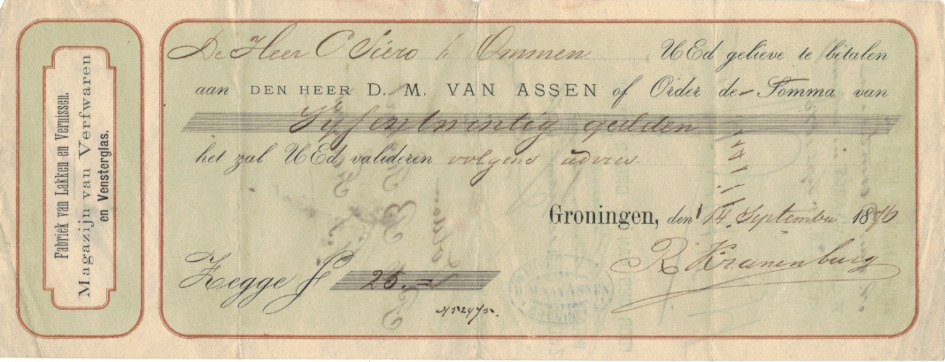 Fabriek van Lakken en Vernissen.
Magazijn van Verfwaren
en Vensterglas.
De Heer C Siero te Ommen UEd gelieve te betalen
aan DEN HEER D. M. VAN ASSEN of Order de Somma van
Vijfentwintig gulden
het zal UEd valideren volgens advies
Groningen, den 14 September 1876
R Kranenburg
Zegge ƒ 25.=